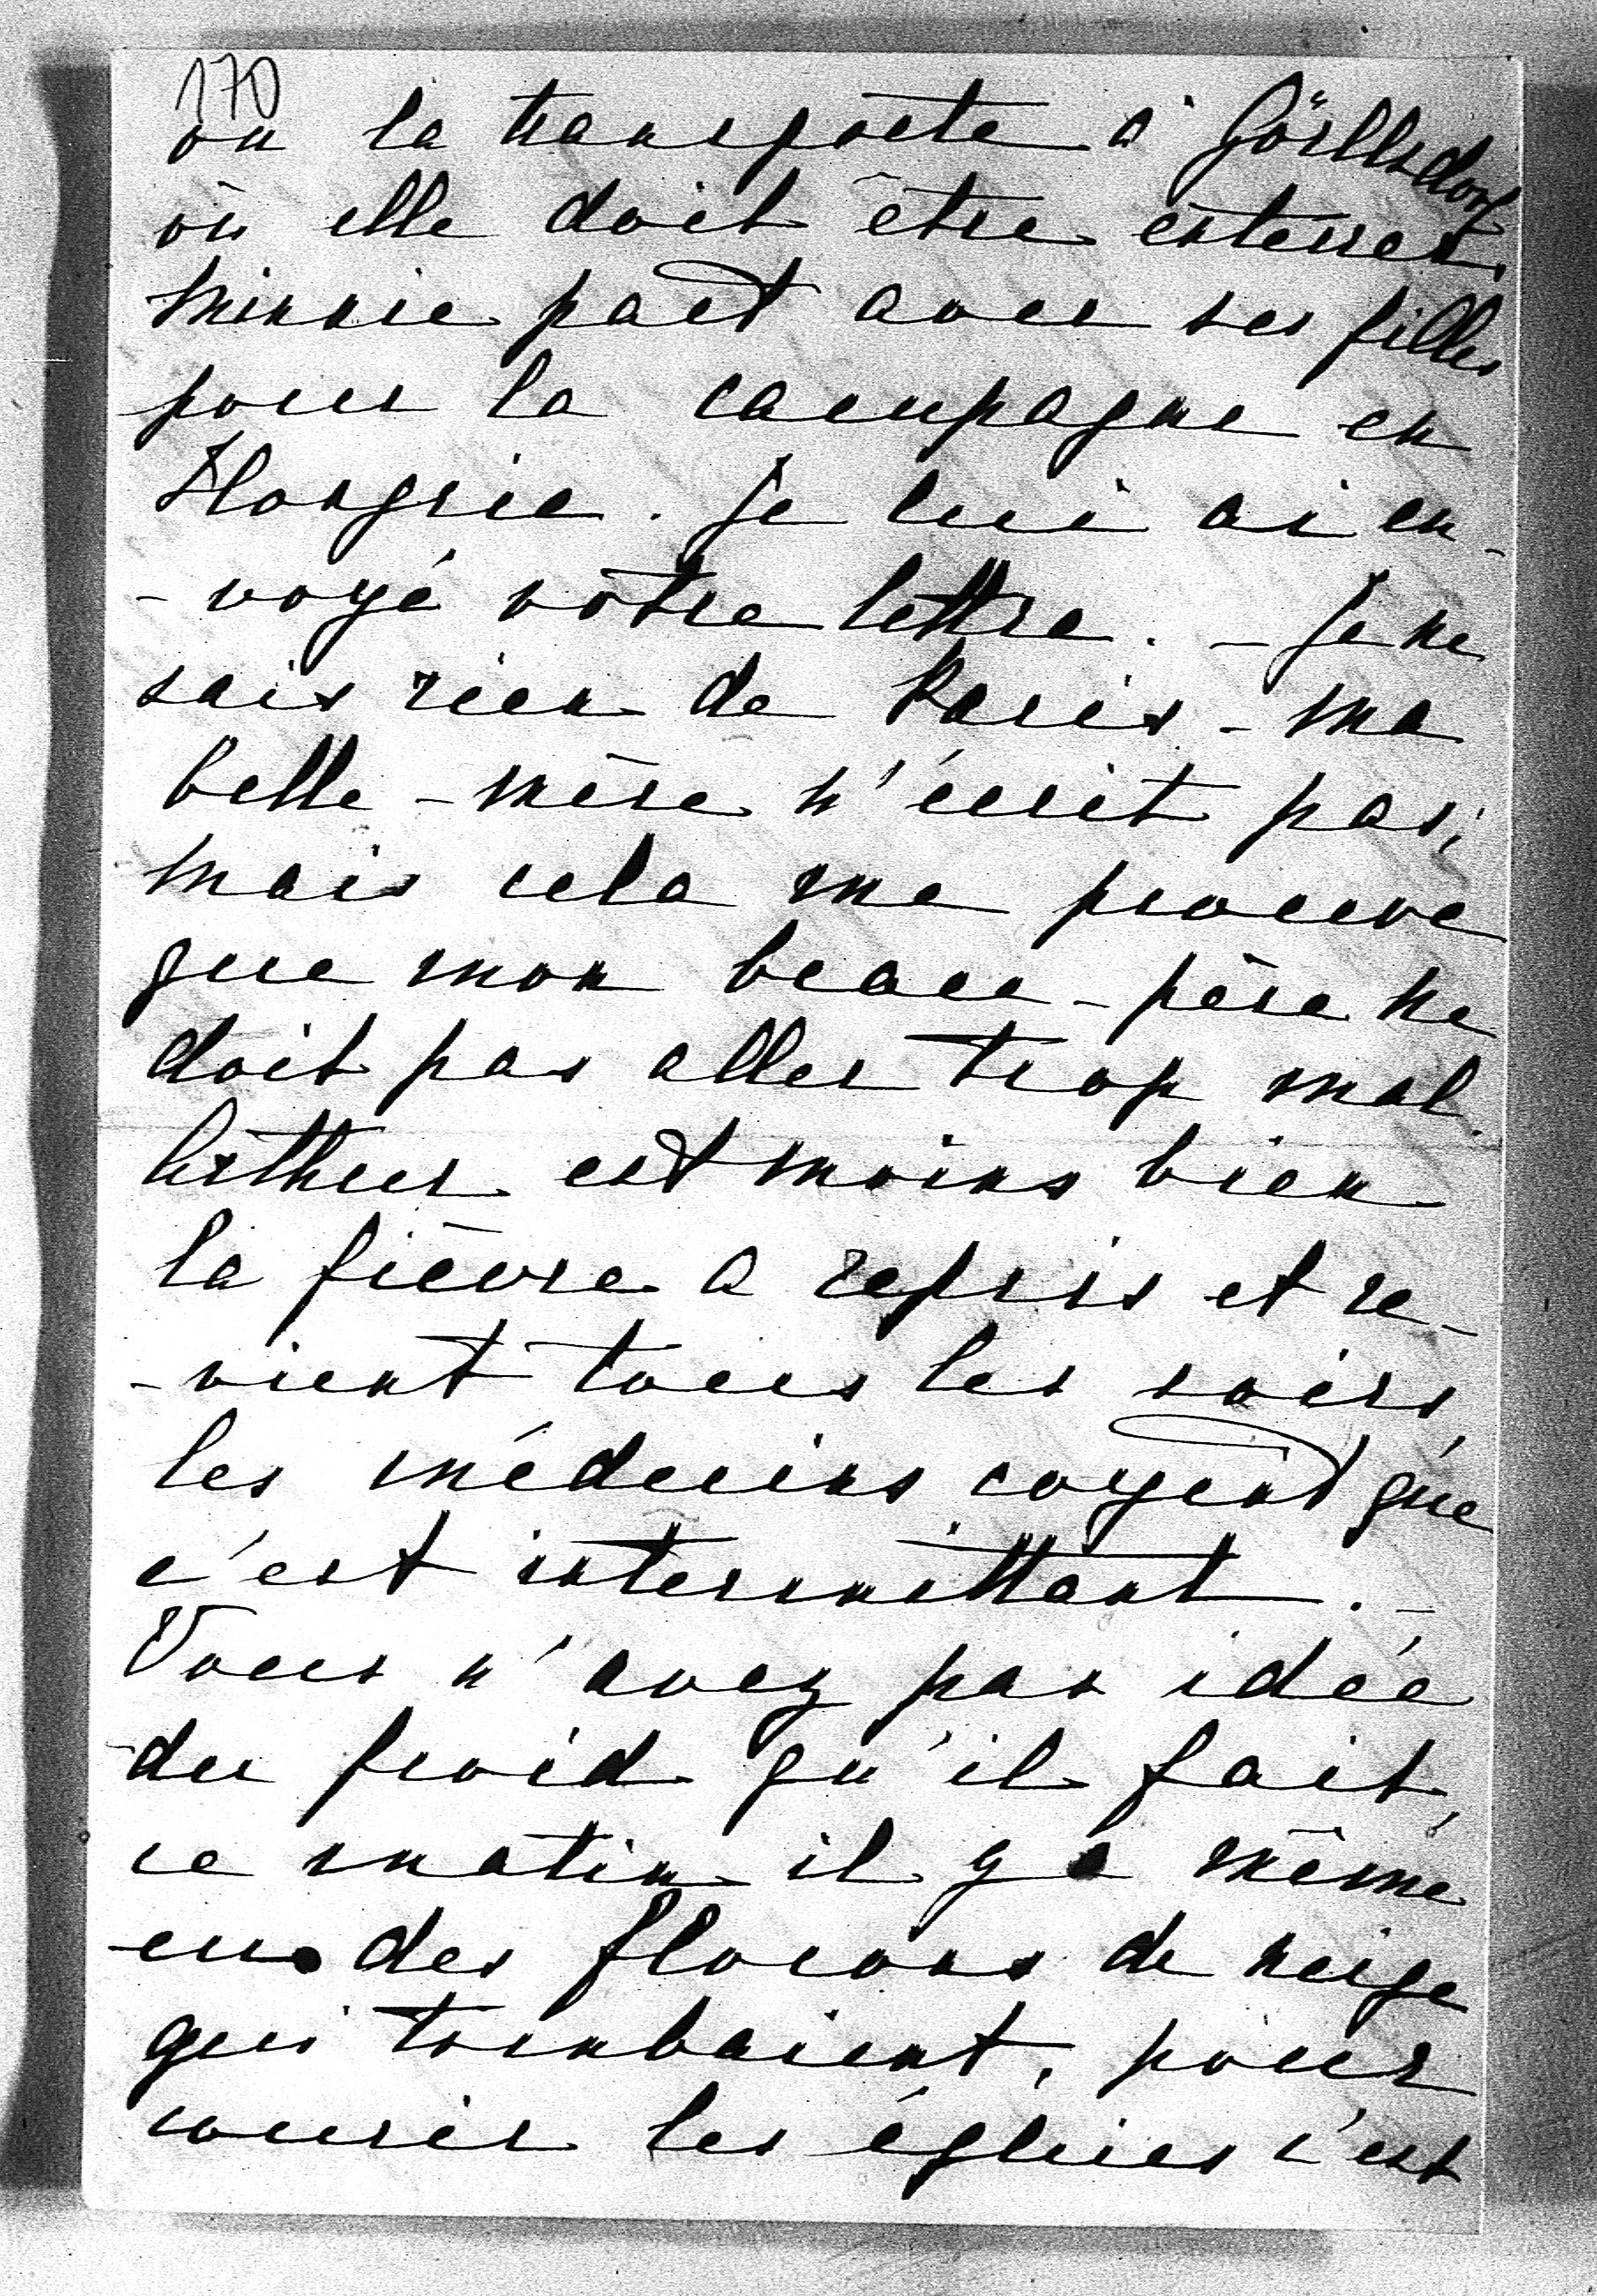 170
on la transporte à Görllsdorf
où elle doit être enterrée,
Minnie part avec ses filles
pour la campagne en
Hongrie. Je lui ai en-
-voyé vôtre lettre. - Je ne
sais rien de Paris - ma
belle-mère n'écrit pas,
mais cela me prouve
que mon beau-père ne
doit pas aller trop mal.
Arthur est moins bien
la fièvre a repris et re-
-vient tous les soirs,
les médecins coyent que
c'est intermittant. -
Vous n'avez pas idée
du froid qu'il fait,
ce matin il y a même
eu des flocons de neige
qui tombaient, pour
courir les églises c'est